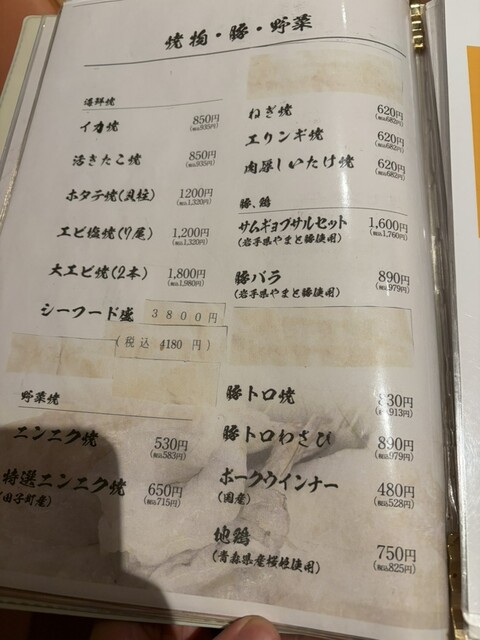 焼物・豚・野菜
海鮮焼
イカ焼 850円
(税込935円)
活きたこ焼 850円
(税込935円)
ホタテ焼(貝柱) 1200円
(税込1,320円)
エビ塩焼(7尾) 1,200円
(税込1,320円)
大エビ焼(2本) 1,800円
(税込1,980円)
シーフード盛 3800円
(税込 4180 円)
野菜焼
ニンニク焼 530円
(税込583円)
特選ニンニク焼 650円
(田子町産) (税込715円)
ねぎ焼 620円
(税込682円)
エリンギ焼 620円
(税込682円)
肉厚しいたけ焼 620円
(税込682円)
豚、鶏
サムギョプサルセット 1,600円
(岩手県やまと豚使用) (税込1,760円)
豚バラ 890円
(岩手県やまと豚使用) (税込979円)
豚トロ焼 830円
(税込913円)
豚トロわさび 890円
(税込979円)
ポークウインナー 480円
(国産) (税込528円)
地鶏 750円
(青森県産桜姫使用) (税込825円)